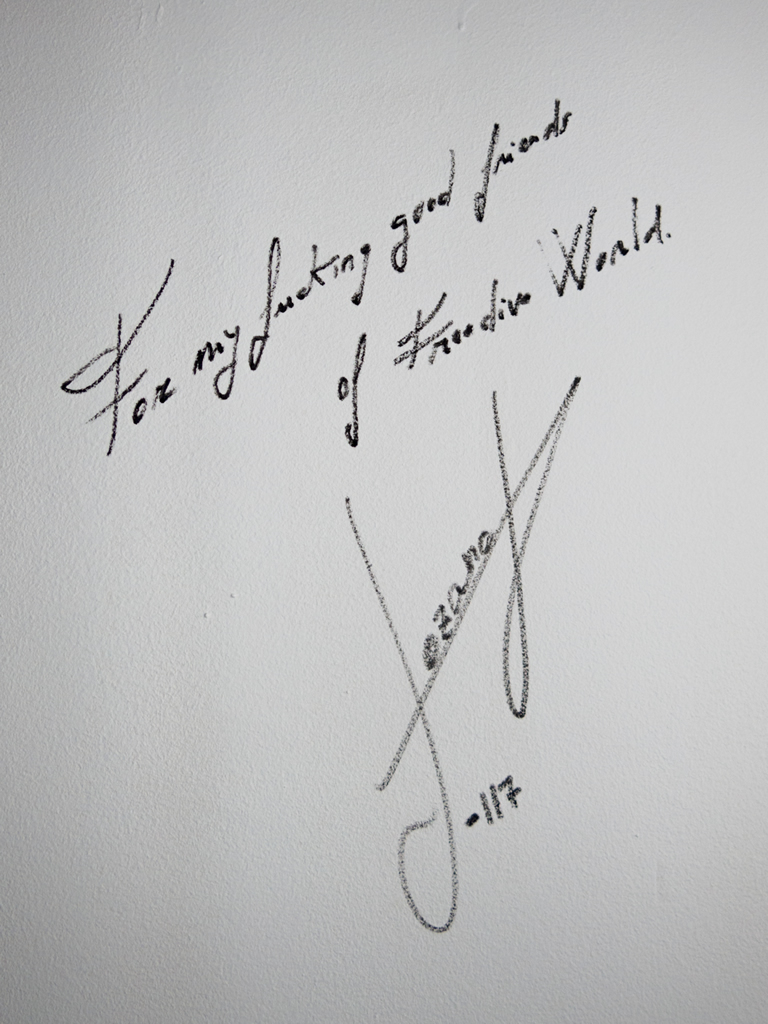 For my fucking good friends
of Freedive World.
Lozano
-117